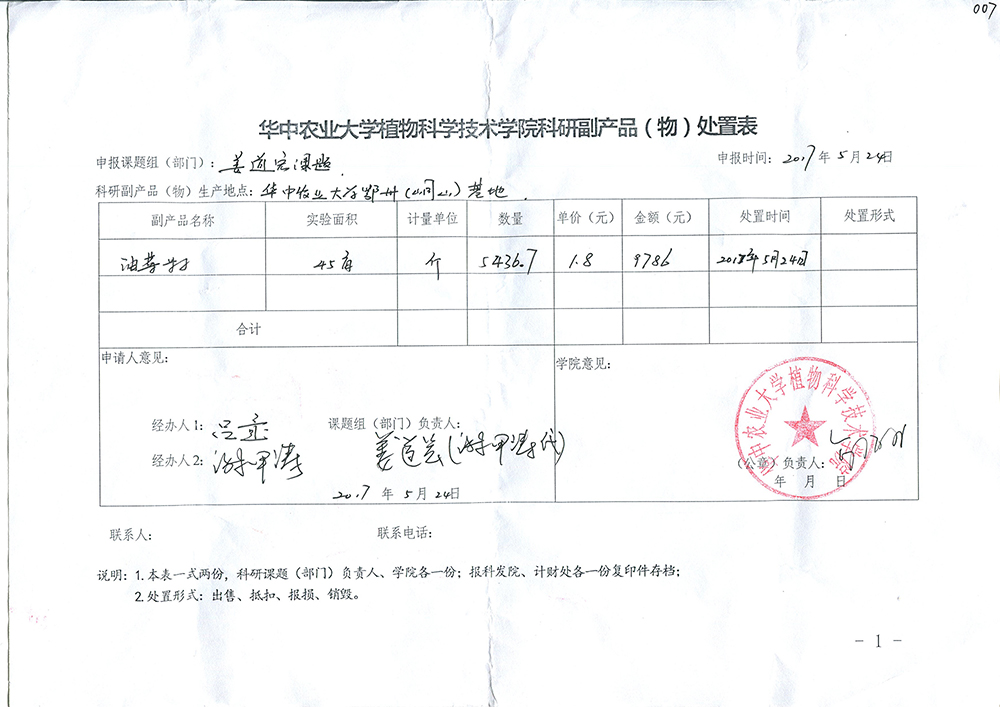 007
华中农业大学植物科学技术学院科研副产品（物）处置表
申报课题组（部门）：姜道宏课题 申报时间：2017年5月24日
科研副产品（物）生产地点：华中农业大学鄂州（山间山）基地
副产品名称 实验面积 计量单位 数量 单价（元） 金额（元） 处置时间 处置形式
油菜籽 45亩 斤 5436.7 1.8 9786 2018年5月24日
合计
申请人意见： 学院意见：
华中农业大学植物科学技术学院
经办人1： 课题组（部门）负责人：
经办人2： 姜道宏（ 代）
（公章）负责人：
2017年5月24日 年 月 日
联系人： 联系电话：
说明：1.本表一式两份，科研课题（部门）负责人、学院各一份；报科发院、计财处各一份复印件存档；
2.处置形式：出售、抵扣、报损、销毁。
- 1 -